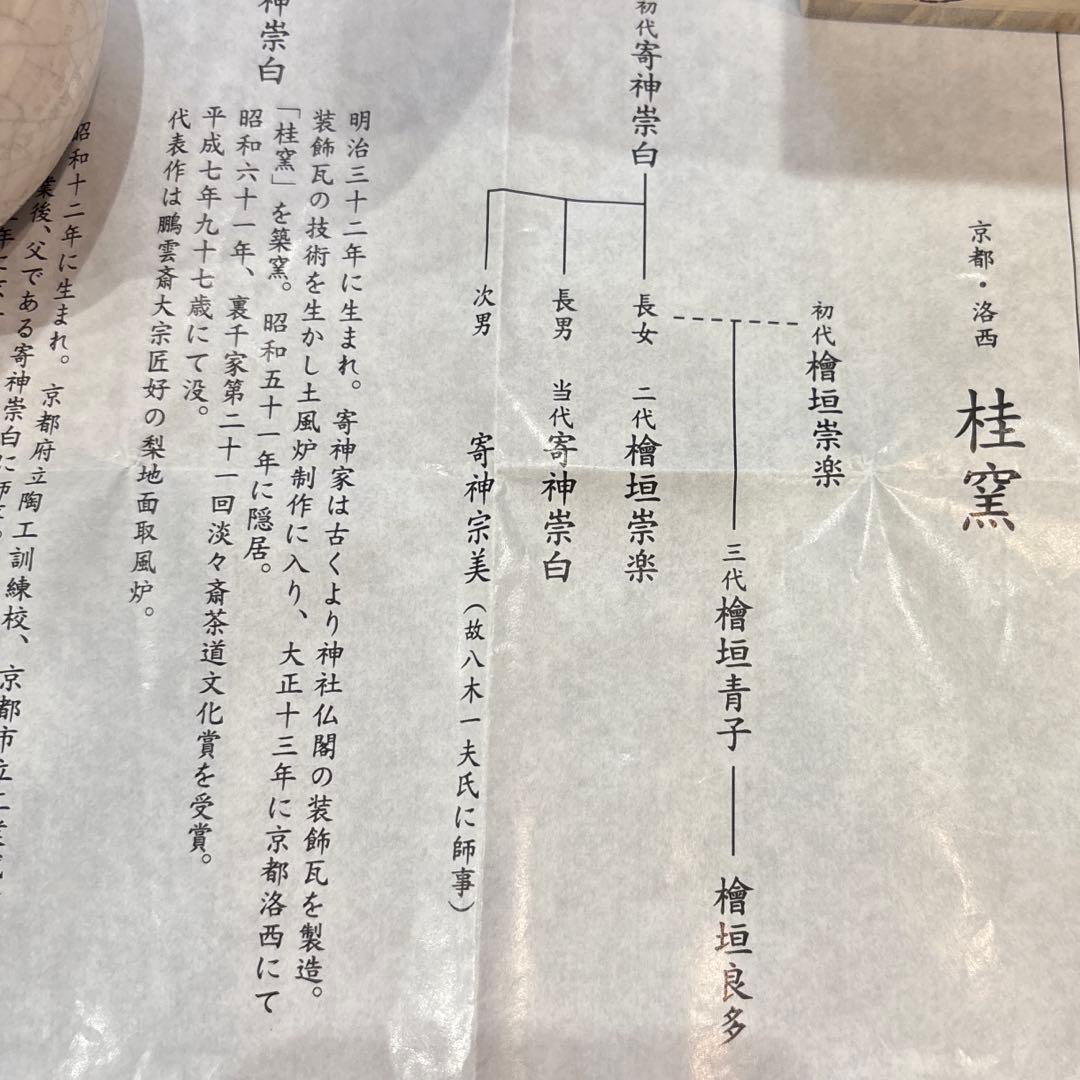 京都・洛西　桂窯
初代檜垣崇楽
三代檜垣青子
檜垣良多
初代寄神崇白
長女　二代檜垣崇楽
長男　当代寄神崇白
次男　寄神宗美（故八木一夫氏に師事）
神崇白
明治三十二年に生まれ。寄神家は古くより神社仏閣の装飾瓦を製造。
装飾瓦の技術を生かし土風炉制作に入り、大正十三年に京都洛西にて
「桂窯」を築窯。昭和五十一年に隠居。
昭和六十一年、裏千家第二十一回淡々斎茶道文化賞を受賞。
平成七年九十七歳にて没。
代表作は鵬雲斎大宗匠好の梨地面取風炉。
昭和十二年に生まれ。京都府立陶工訓練校、京都市立工業試
業後、父である寄神崇白に師事。